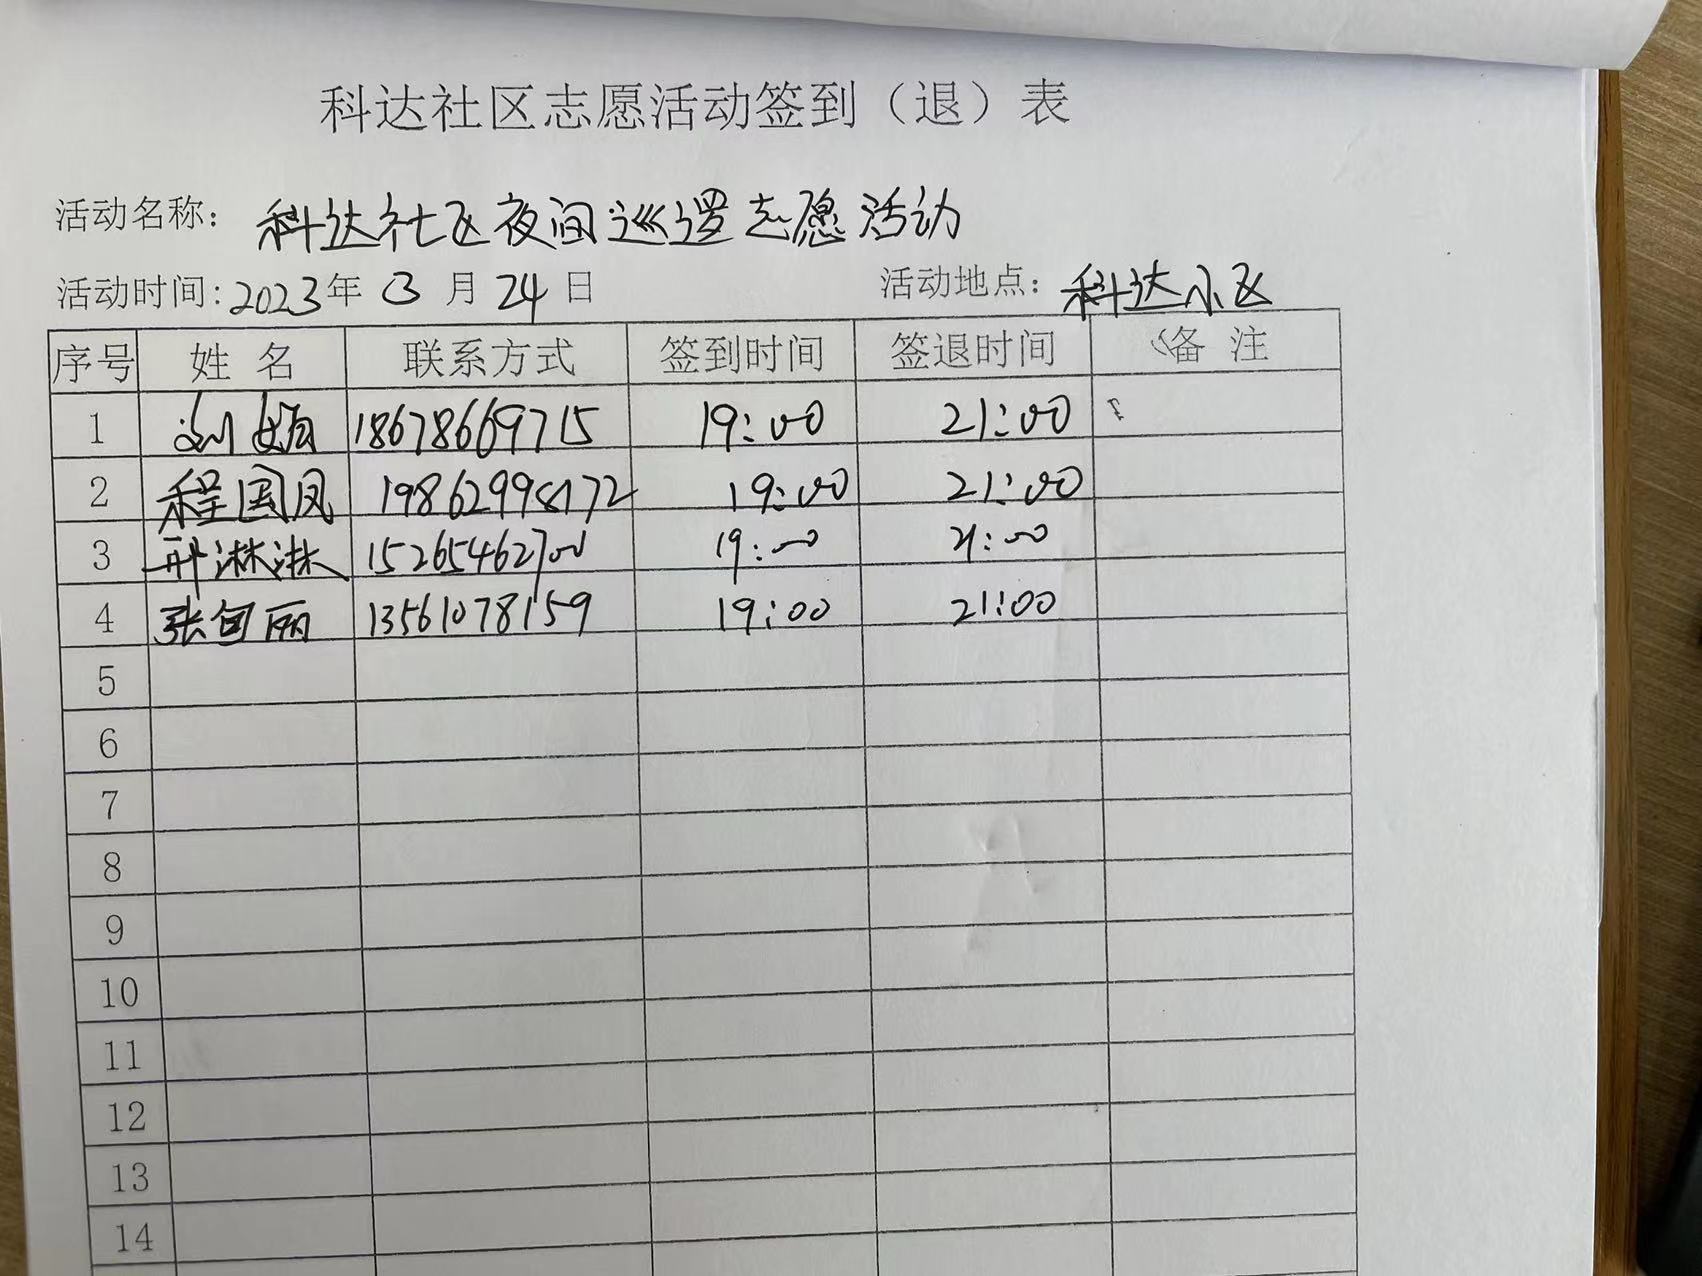 科达社区志愿活动签到（退）表
活动名称：科达社区夜间巡逻志愿活动
活动时间：2023年 3 月 24 日 活动地点：科达小区
序号 姓 名 联系方式 签到时间 签退时间 备 注
1 刘娟 18678669715 19:00 21:00
2 程国凤 19862998172 19:00 21:00
3 邢淋淋 15265462700 19:00 21:00
4 张包丽 13561078159 19:00 21:00
5
6
7
8
9
10
11
12
13
14